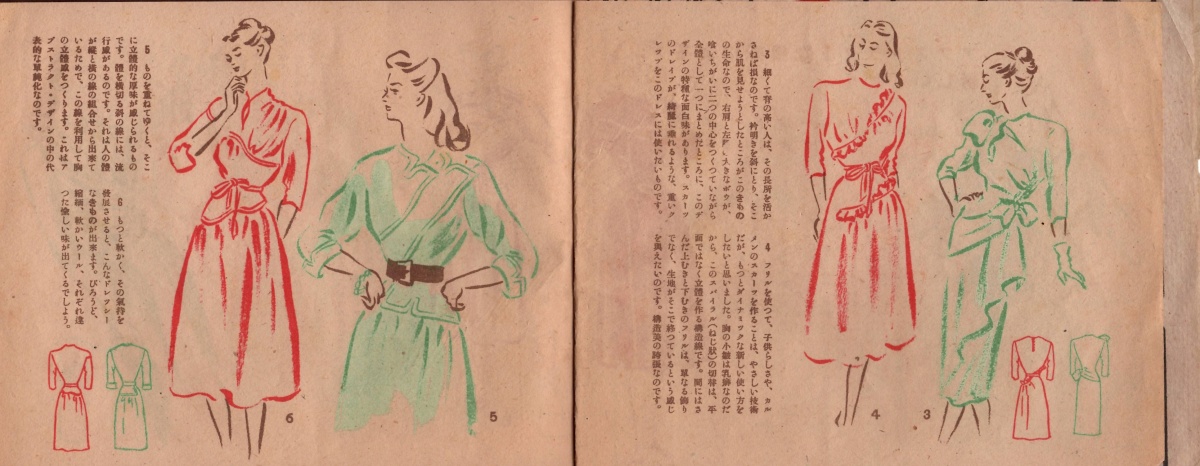 3　細くて脊の高い人は、その長所を活か
さねば損なのです。衿明きを斜にとり、そこ
から肌を見せようとしたところがこのきもの
の生命なので、右肩と左 大きなボウが、
喰いちがいに二つの中心をつくつていながら
全體として一つにまとめたところに、このデ
ザインの特種な面白味があります。スカーツ
のドレイプが、綺麗に垂れるような、重いク
レツプをこのドレスには使いたいものです。
4　フリルを使つて、子供らしさや、カル
メンのスカーツを作ることは、やさしい技術
だが、もつとダイナミツクな新しい使い方を
したいと思いました。胸の小皺は乳房なのだ
から、このスパイラル(ねじ状)の切替は、平
面ではなく立體を作る構造線です。間にはさ
んだ上むきと下むきのフリルは、單なる飾り
でなく、生地がそこで終つているという感じ
を與えたいのです。構造美の誇張なのです。
3
4
5　ものを重ねてゆくと、そこ
に立體的な厚味が感じられるもの
です。體を横切る斜の線には、流
行感があるのです。それは人の體
が縱と横の線の組合せから出來て
いるためで、この線を利用して胸
の立體感をつくります。これはア
ブストラクト・デザインの中の代
表的な單純化なのです。
6　もつと軟かく、その氣持を
發展させると、こんなドレツシー
なきものが出來ます。びろうど、
縮緬、軟かいウール、それぞれ違
つた愉しい味が出てくるでしよう。
5
6